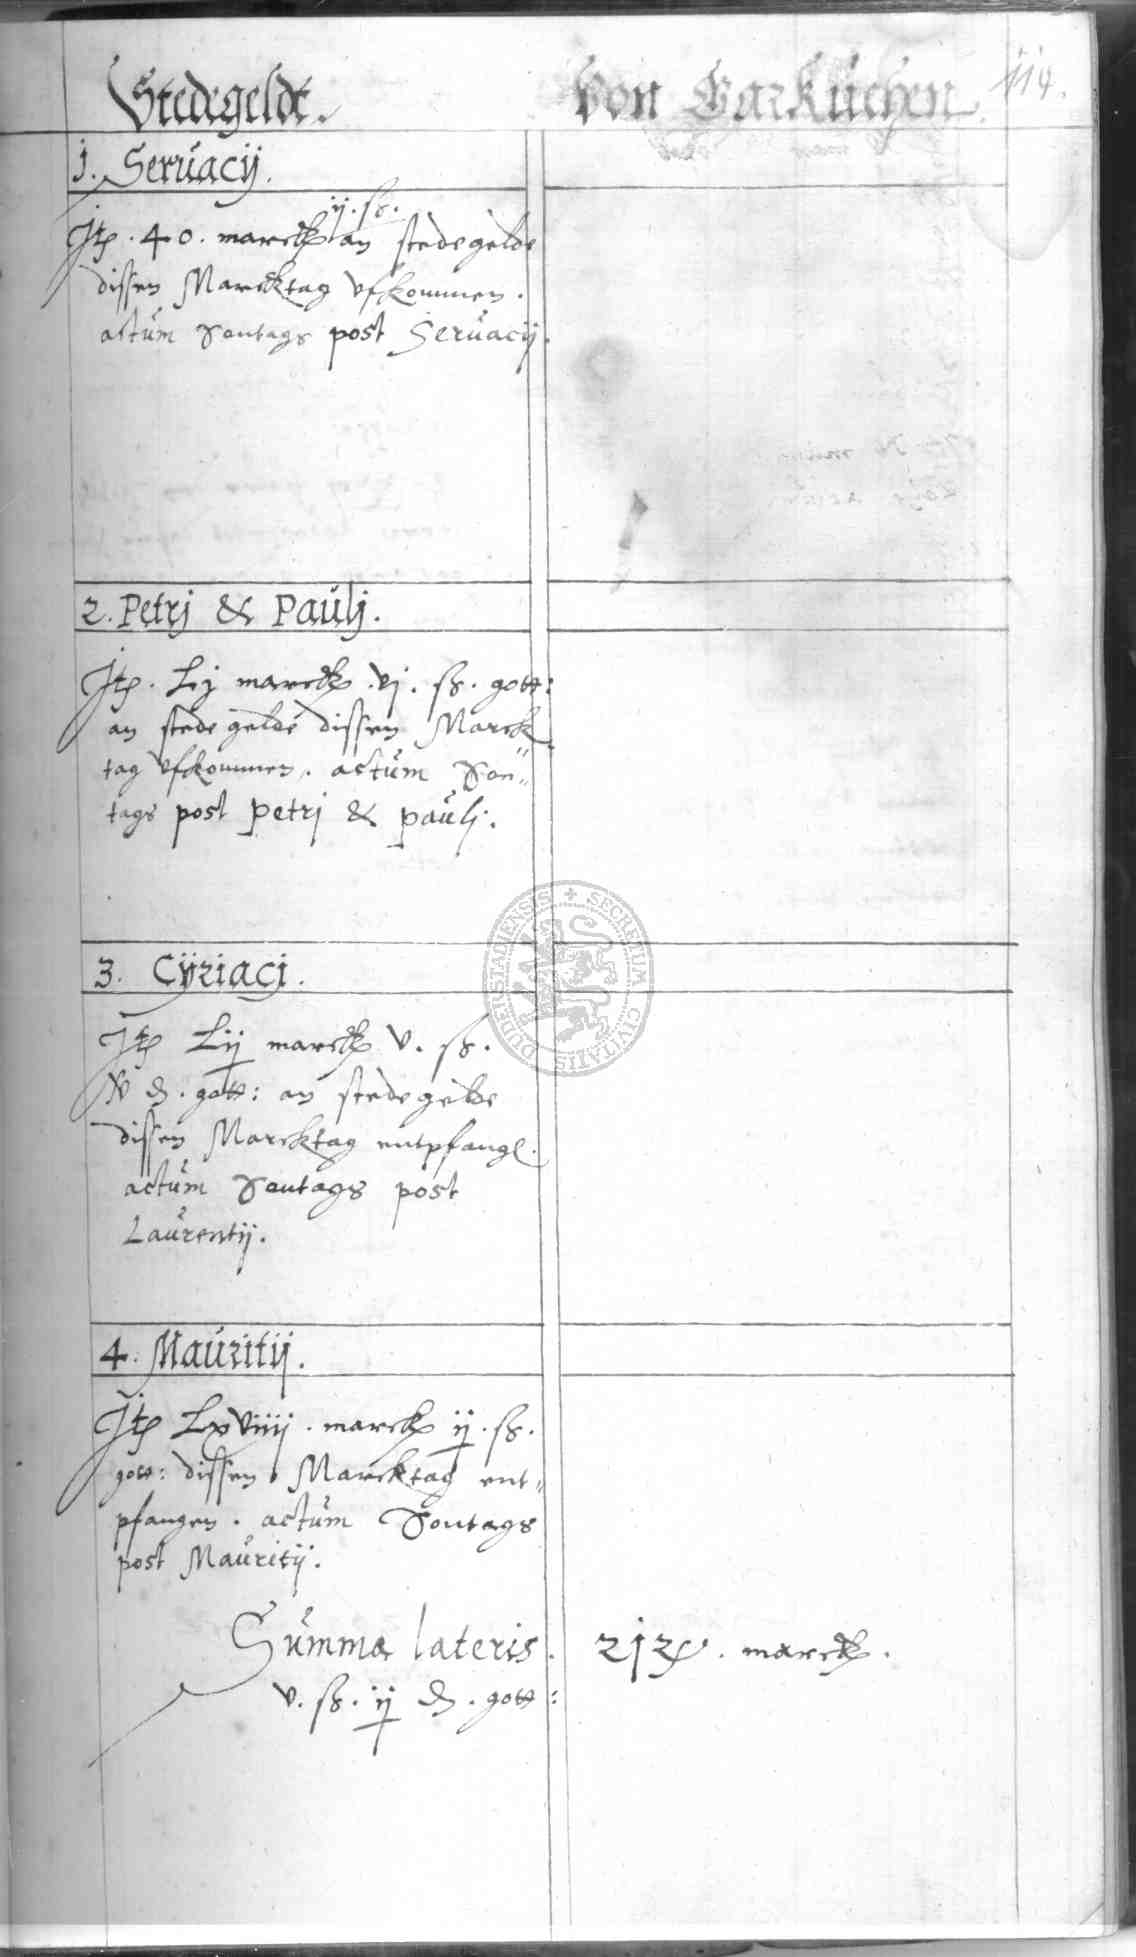 Stedegeldt. Von Garküchen. 114.
1. Seruacij.
ij. ß.
Itē. 40. marck an stedegelde
dissen Marcktag vfkommen.
actum Sontags post Seruacij.
2. Petrj & Paulj.
Itē. Lj marck .vj. ß. gott:
an stede gelde dissen Marck
tag vfkommen. actum Son„
tags post Petrj & paulj.
3. Cÿriacj.
Itē Lij marck V. ß.
₰. gott: an stedegelde
dissen Marcktag entpfang.
actum Sontags post
Laurentij.
4. Mauritij.
Itē LxViiij. marck ij. ß.
gott: dissen Marcktag ent„
pfangen. actum Sontags
post Mauritij.
Summa lateris. marck.
v. ß. ij ₰. gott:
SECRETUM CIVITATIS DUDERSTADIENSIS